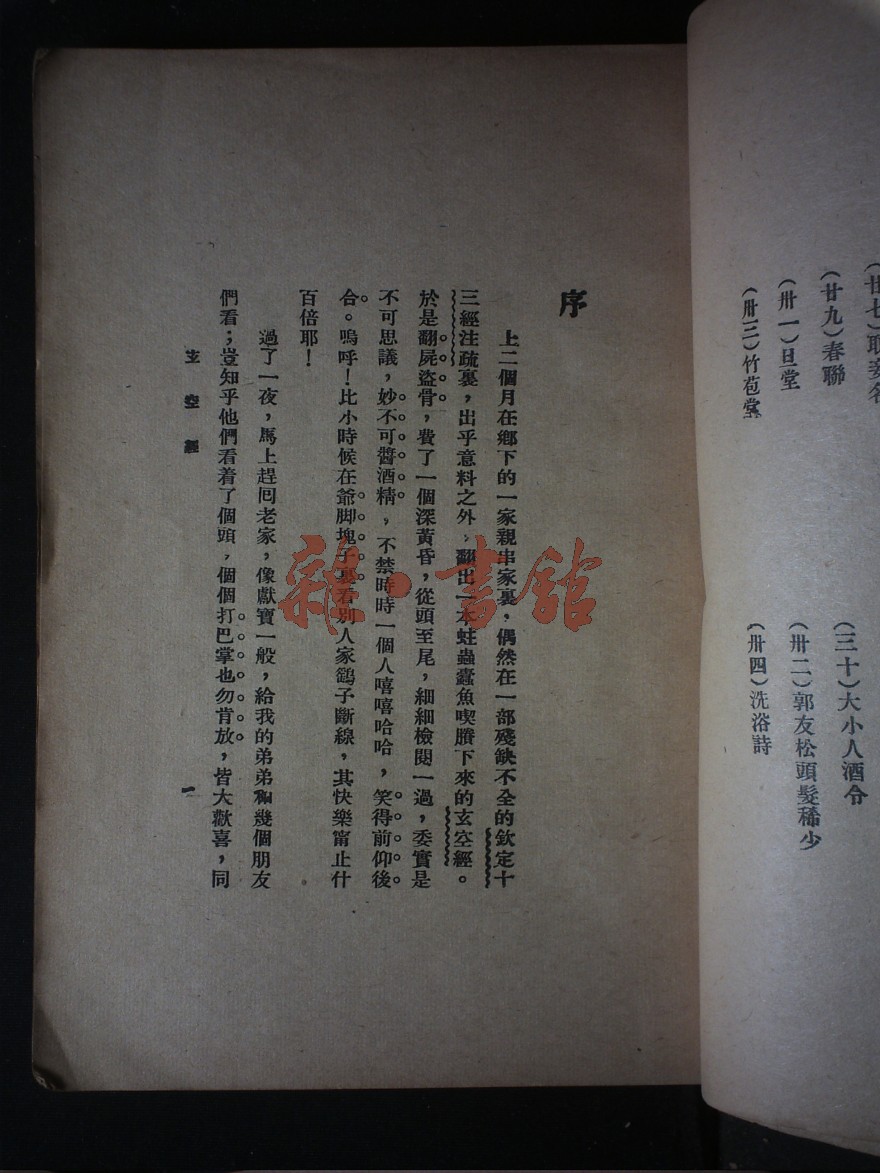 (廿七)取妾名
(廿九)春聯
(三十)大小人酒令
(卅一)旦堂
(卅二)郭友松頭髮稀少
(卅三)竹苞堂
(卅四)洗浴詩
序
上二個月在鄉下的一家親串家裏，偶然在一部殘缺不全的欽定十
三經注疏裏，出乎意料之外，翻出一本蛀蟲蠹魚喫賸下來的玄空經。
於是翻屍盜骨，費了一個深黃昏，從頭至尾，細細檢閱一過，委實是
不可思議，妙不可醬酒精，不禁時時一個人嘻嘻哈哈，笑得前仰後
合。嗚呼！比小時候在爺脚塊子裏看別人家鷂子斷線，其快樂甯止什
百倍耶！
過了一夜，馬上趕囘老家，像獻寶一般，給我的弟弟和幾個朋友
們看；豈知乎他們看着了個頭，個個打巴掌也勿肯放，皆大歡喜，同
玄空經
一
雜·書館